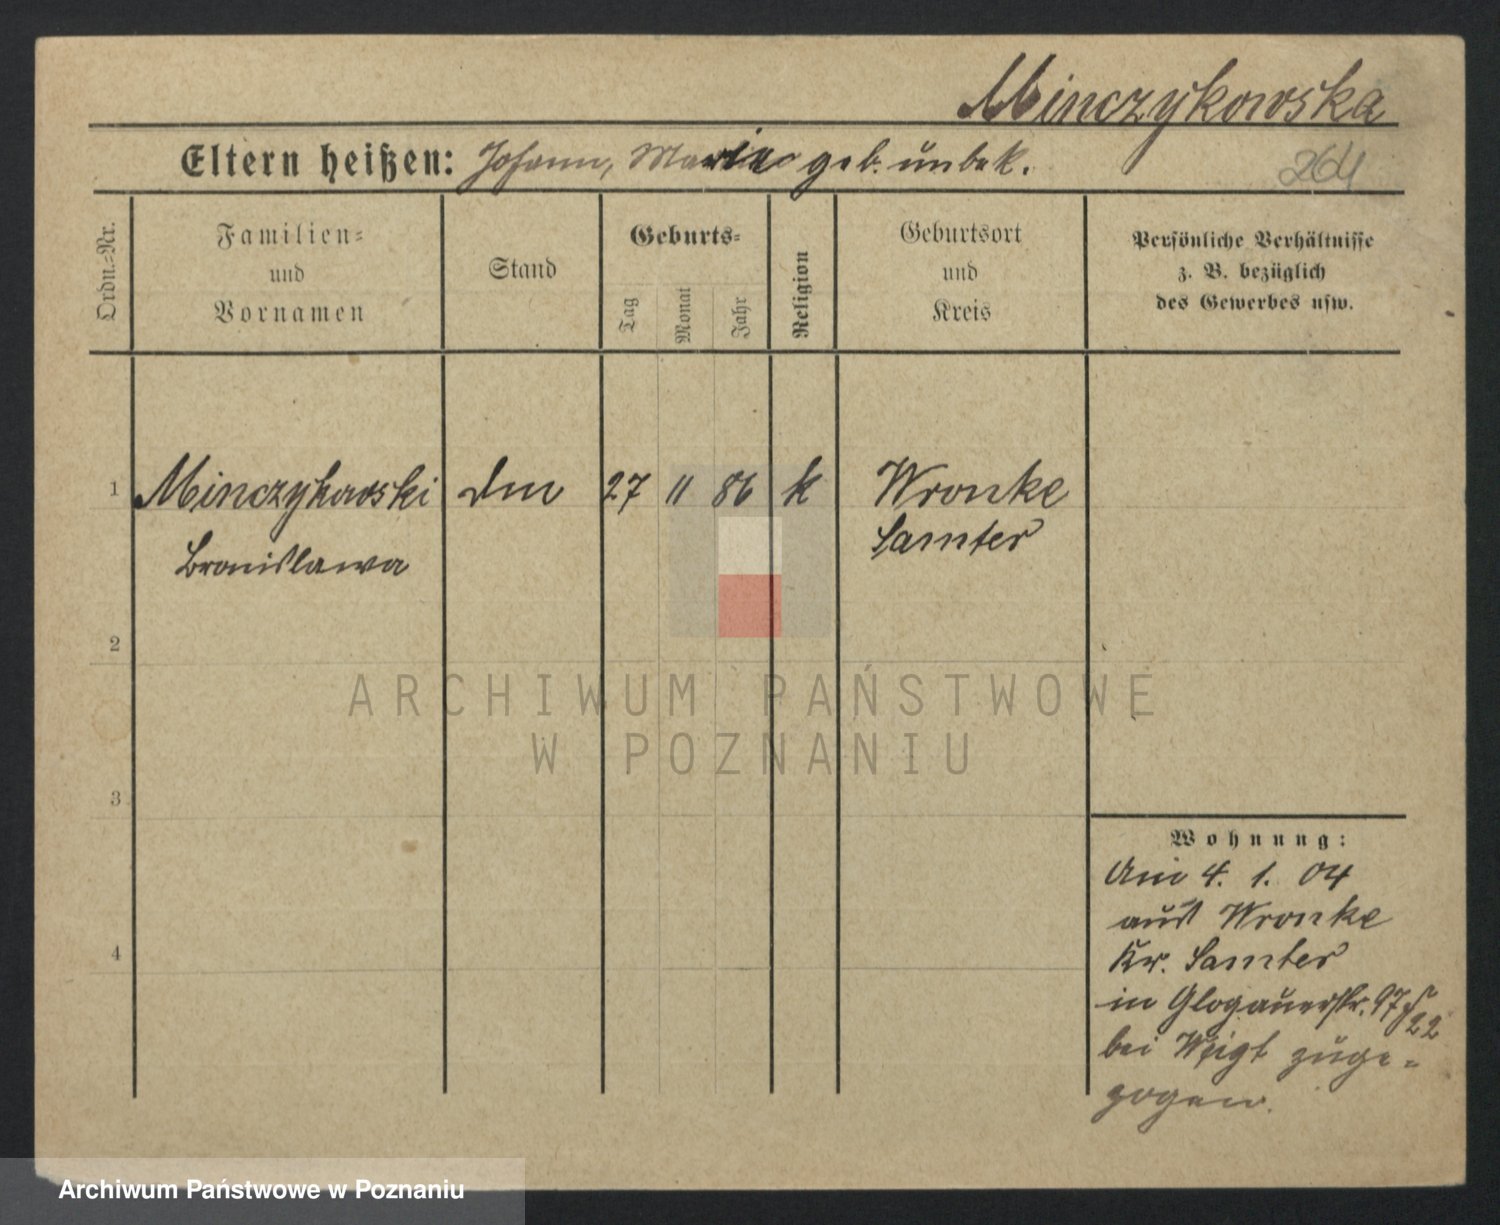 Minczykowska
Eltern heißen: Johann, Marie geb. unbek.
264
Ordn.-Nr.
Familien-
und
Vornamen
Stand
Geburts-
Tag
Monat
Jahr
Religion
Geburtsort
und
Kreis
Persönliche Verhältnisse
z. B. bezüglich
des Gewerbes usw.
1 Minczykowski Dm 27 11 86 k Wronke
Samter
Bronislawa
2
3
4
ARCHIWUM PAŃSTWOWE
W POZNANIU
Wohnung:
Am 4. 1. 04
aus Wronke
Kr. Samter
in Glogauerstr. 97
22
bei Weigt zuge-
zogen.
Archiwum Państwowe w Poznaniu